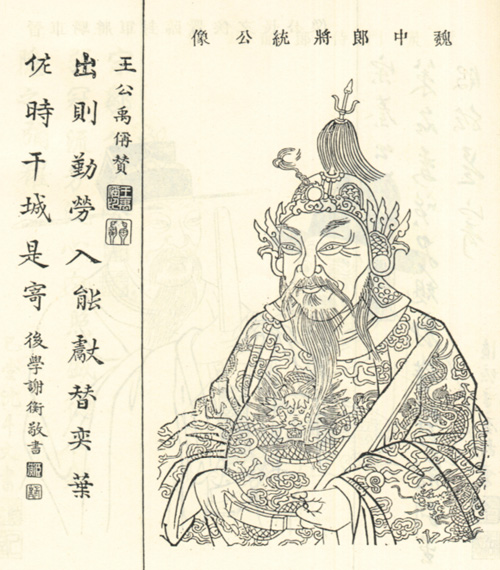 魏中郎將統公像
王公禹偁贊
出則勤勞入能獻替奕葉
佐時干城是寄
後學謝衡敬書